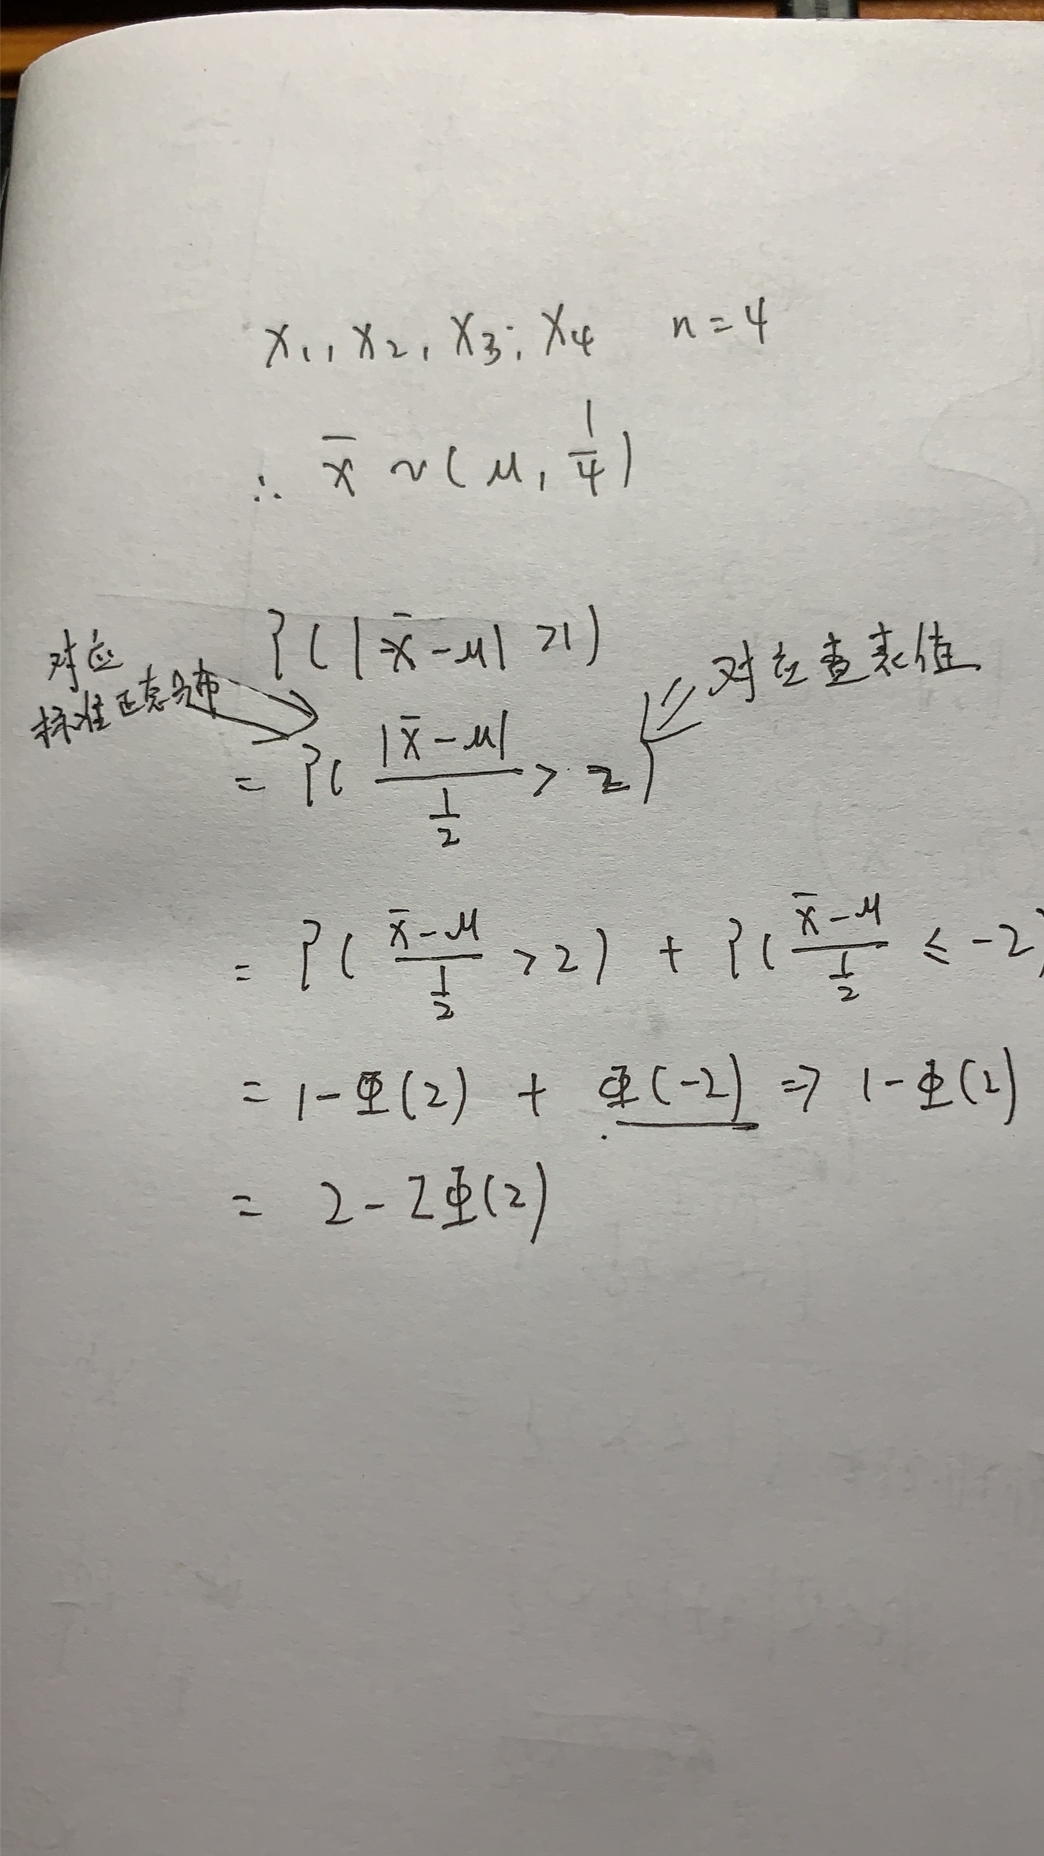 X₁, X₂, X₃, X₄ n=4
∴ x̄ ~ (μ, 1/4)
P(|x̄-μ|>1)
对应
标准正态分布
对应查表值
= P(|x̄-μ| / (1/2) > 2)
= P((x̄-μ)/(1/2) > 2) + P((x̄-μ)/(1/2) ≤ -2)
= 1-Φ(2) + Φ(-2) ⇒ 1-Φ(2)
= 2-2Φ(2)